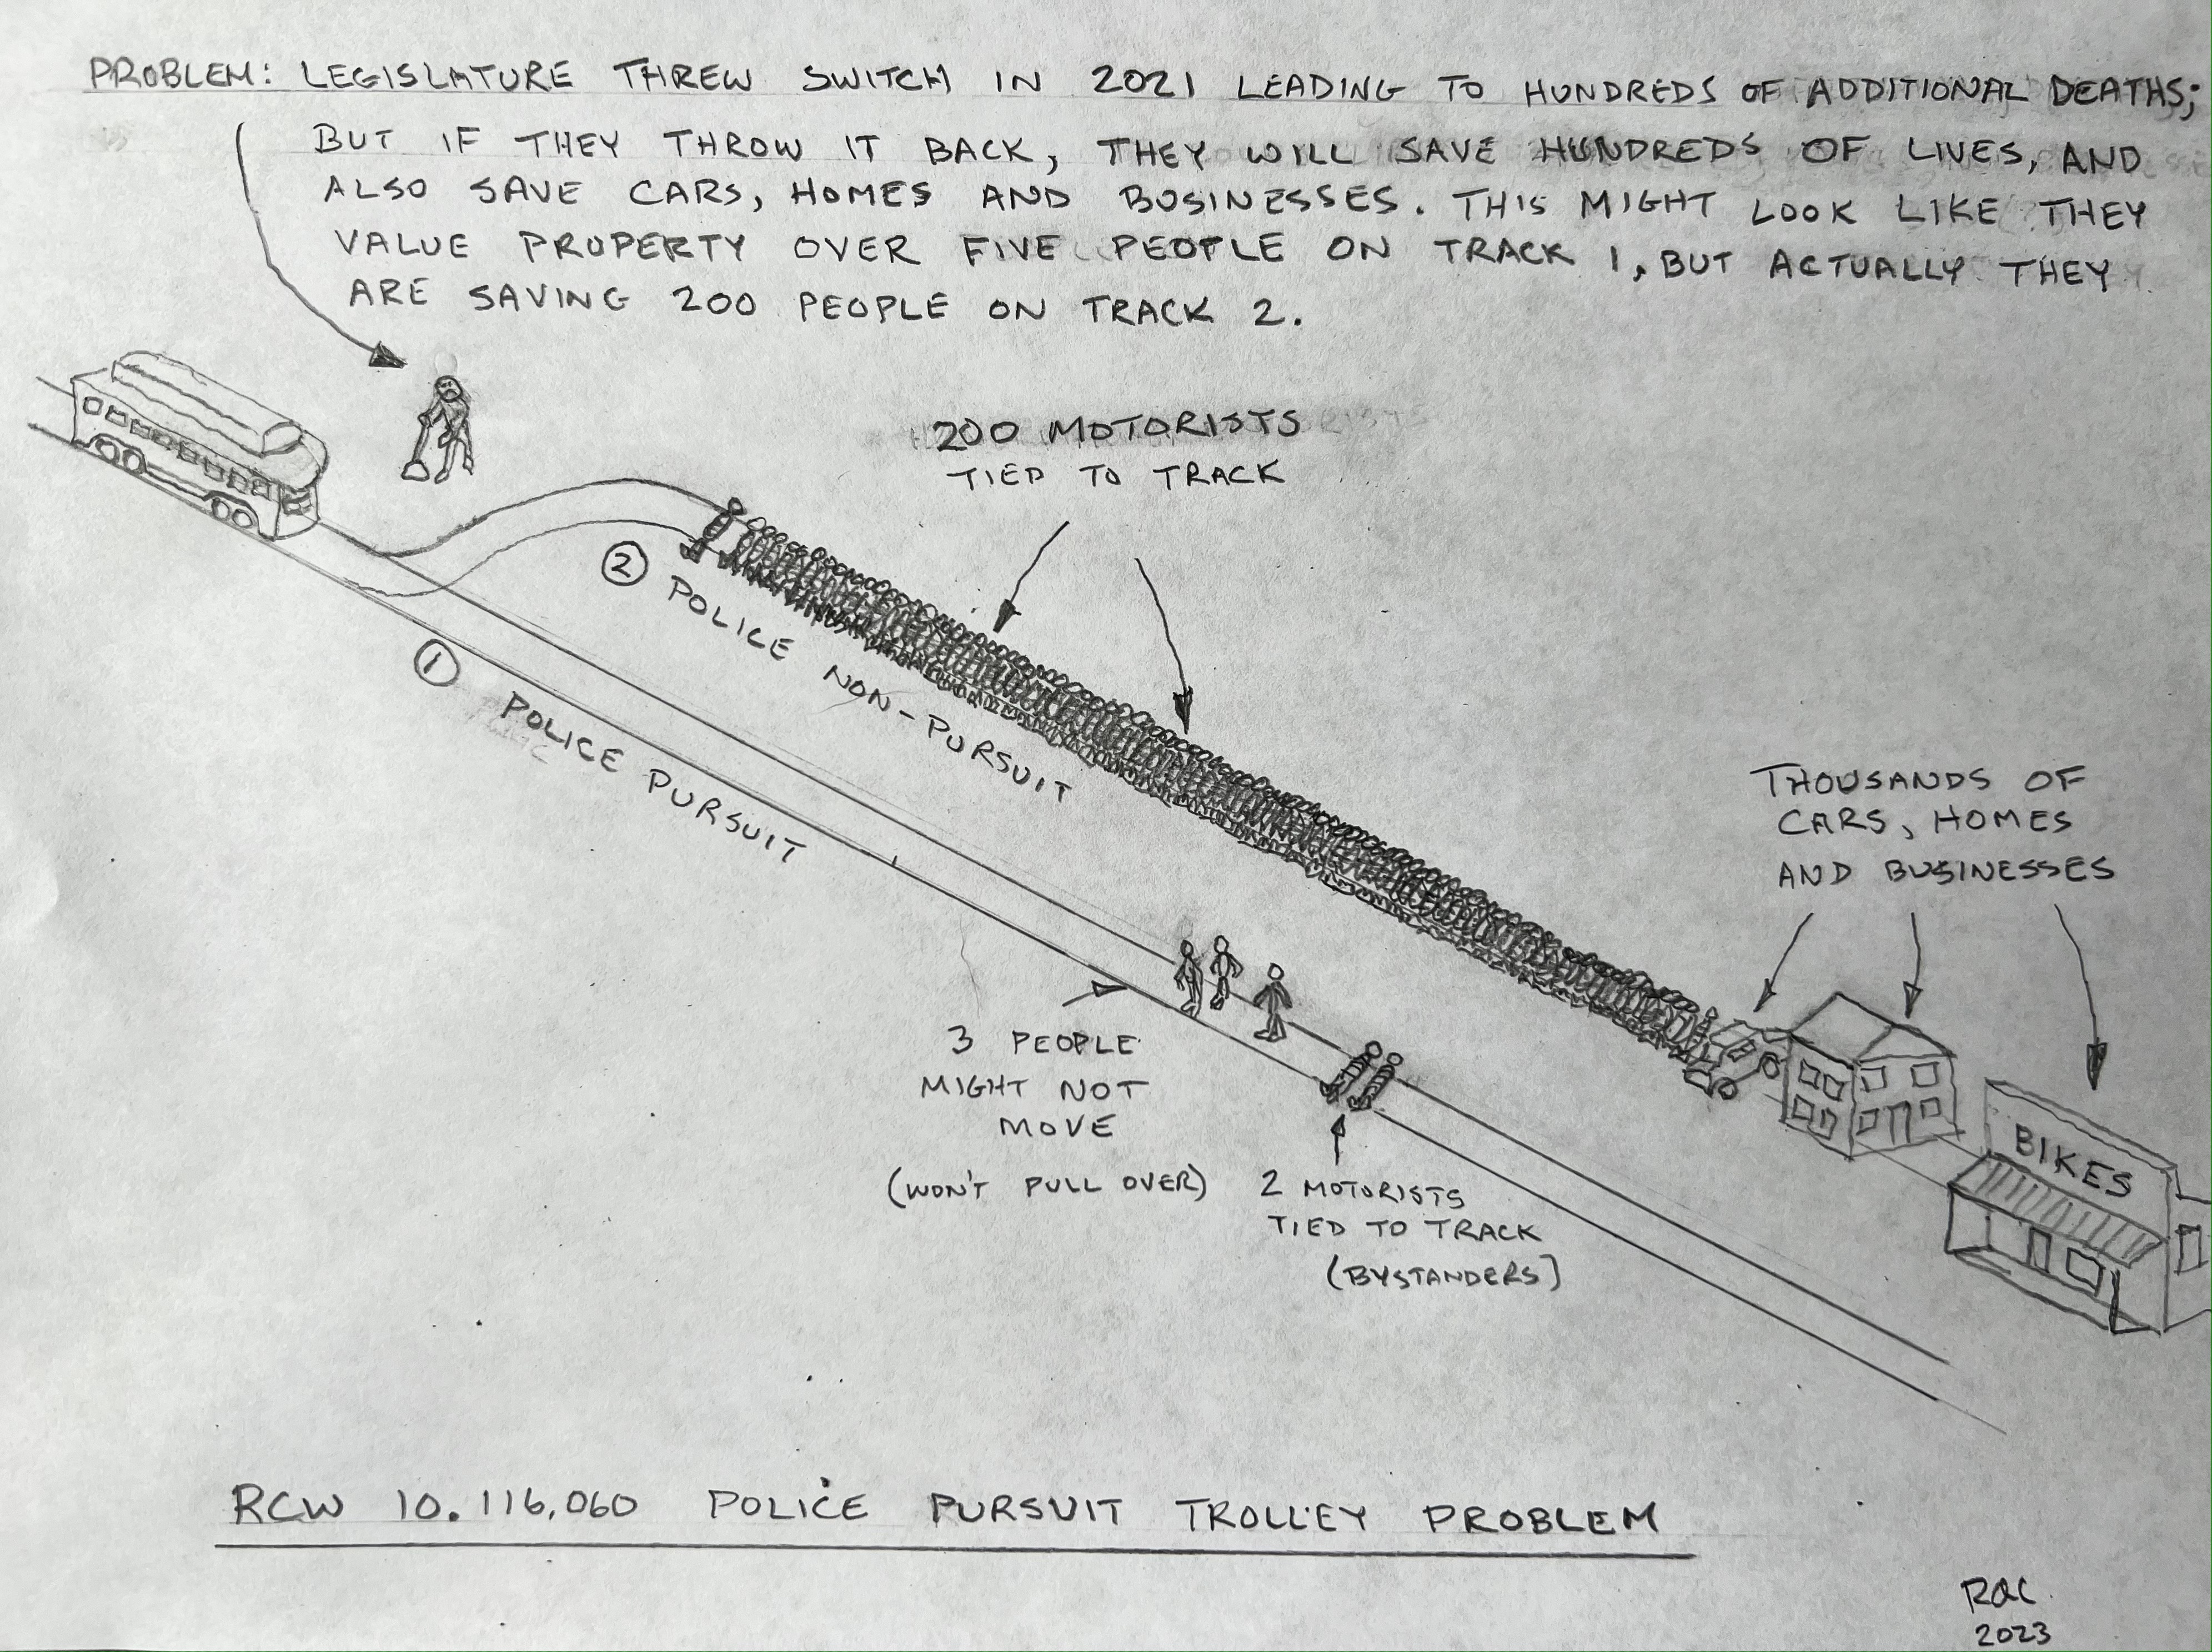 PROBLEM: LEGISLATURE THREW SWITCH IN 2021 LEADING TO HUNDREDS OF ADDITIONAL DEATHS;
BUT IF THEY THROW IT BACK, THEY WILL SAVE HUNDREDS OF LIVES, AND
ALSO SAVE CARS, HOMES AND BUSINESSES. THIS MIGHT LOOK LIKE THEY
VALUE PROPERTY OVER FIVE PEOPLE ON TRACK 1, BUT ACTUALLY THEY
ARE SAVING 200 PEOPLE ON TRACK 2.
200 MOTORISTS
TIED TO TRACK
2 POLICE NON-PURSUIT
1 POLICE PURSUIT
THOUSANDS OF
CARS, HOMES
AND BUSINESSES
3 PEOPLE
MIGHT NOT
MOVE
(WON'T PULL OVER)
2 MOTORISTS
TIED TO TRACK
(BYSTANDERS)
BIKES
RCW 10.116.060 POLICE PURSUIT TROLLEY PROBLEM
2023